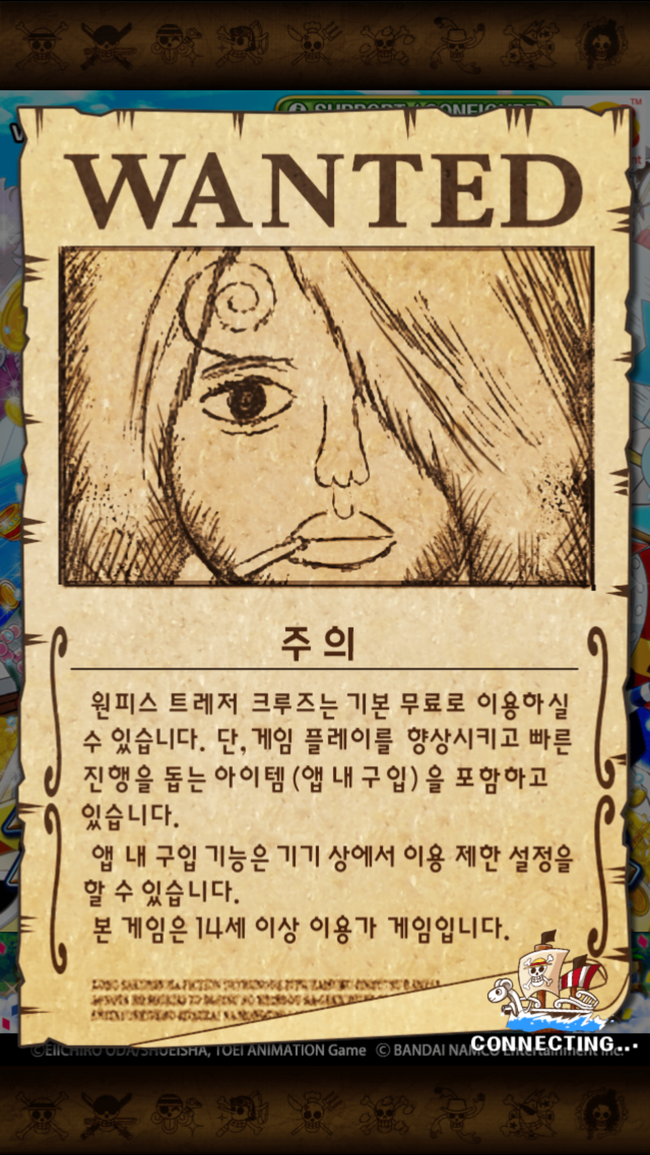 SUPPORT / CONFIGURE
TM
WANTED
주의
원피스 트레저 크루즈는 기본 무료로 이용하실
수 있습니다. 단, 게임 플레이를 향상시키고 빠른
진행을 돕는 아이템(앱 내 구입)을 포함하고
있습니다.
앱 내 구입 기능은 기기 상에서 이용 제한 설정을
할 수 있습니다.
본 게임은 14세 이상 이용가 게임입니다.
CONNECTING...
©EIICHIRO ODA/SHUEISHA, TOEI ANIMATION Game © BANDAI NAMCO Entertainment Inc.